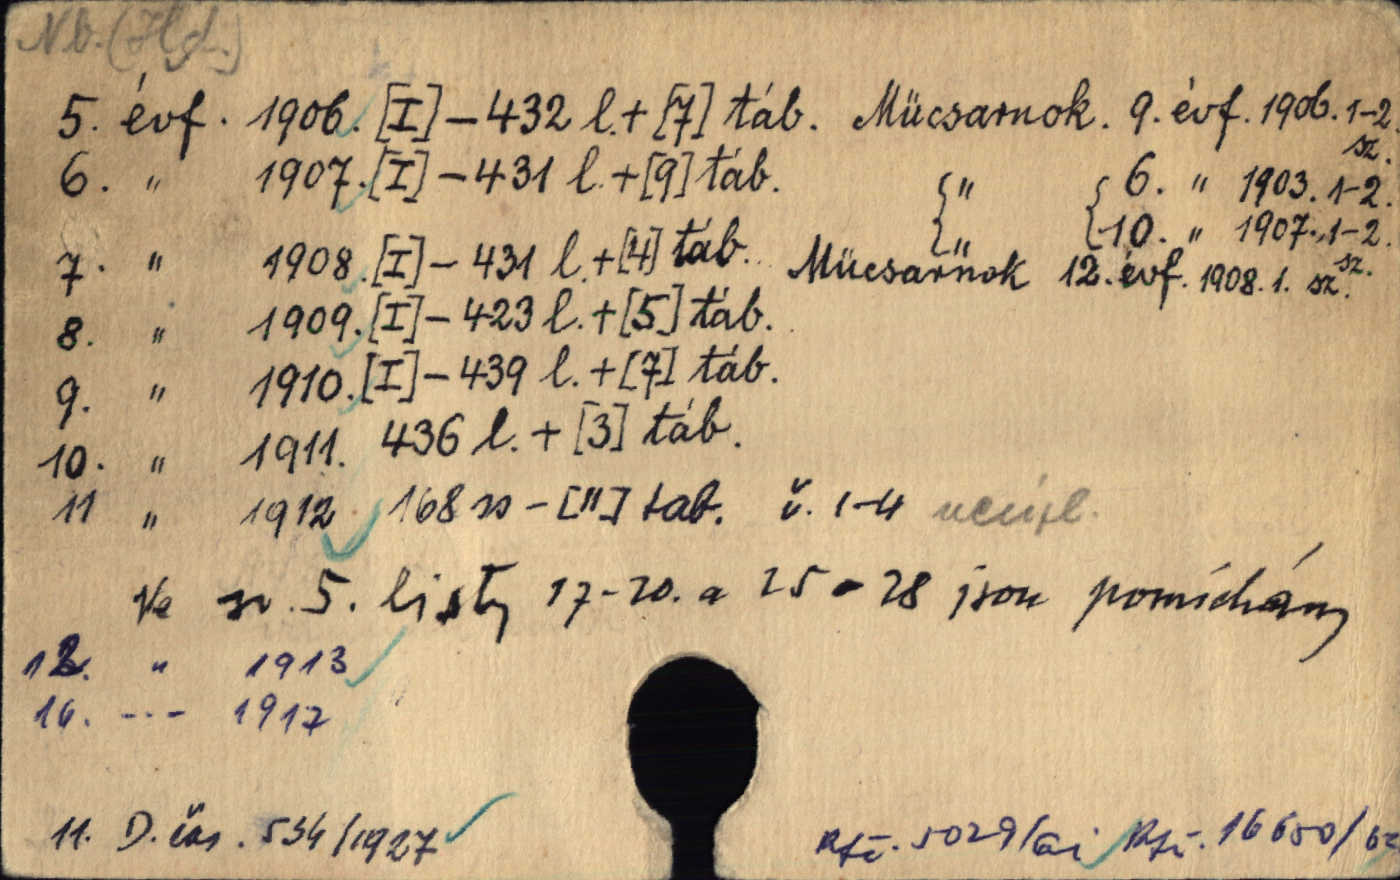 5. évf. 1906. [I]-432 l.+[7] táb. Mücsarnok. 9. évf. 1906. 1-2 sz.
6. " 1907. [I]-431 l.+[9] táb. " 6. " 1903. 1-2.
" 10. " 1907. 1-2. sz.
7. " 1908. [I]-431 l.+[4] táb. Mücsarnok 12. évf. 1908. 1. sz.
8. " 1909. [I]-423 l.+[5] táb.
9. " 1910. [I]-439 l.+[7] táb.
10. " 1911. 436 l.+[3] táb.
11 " 1912 168 - ["] tab. č. 1-4
Ve sv. 5. listy 17-20. a 25-28 jsou pomíchány
12. " 1913
16. --- 1917
11. D. čas. 534/1927
5029/ 16650/62